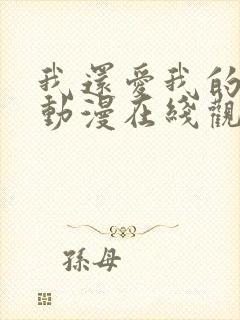 我還愛我的
動漫在綫觀
孫母